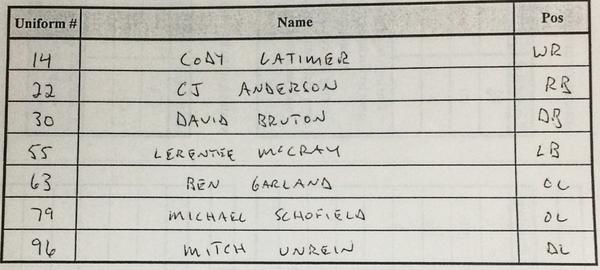 Uniform # Name Pos
14 CODY LATIMER WR
22 CJ ANDERSON RB
30 DAVID BRUTON DB
55 LERENTEE MCCRAY LB
63 BEN GARLAND OL
79 MICHAEL SCHOFIELD OL
96 MITCH UNREIN DL